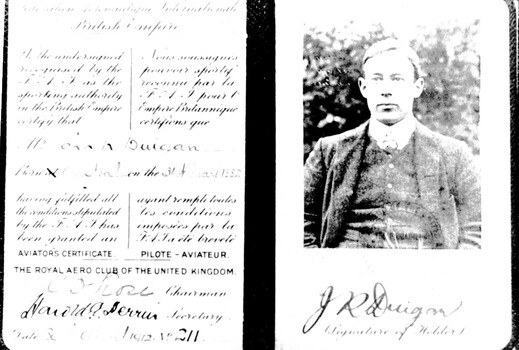 Aeronautique Internationale
British Empire
We the undersigned
recognised by the
F.A.I as the
sporting authority
in the British Empire
certify that
Nous soussignés
pouvoir sportif
reconnu par la
F.A.I pour l'
Empire Britannique
certifions que
Duigan
Born on the 31
having fulfilled all
the conditions stipulated
by the F.A.I has
been granted an
ayant rempli toutes
les conditions
imposées par la
F.A.I a été breveté
AVIATORS CERTIFICATE. PILOTE-AVIATEUR.
THE ROYAL AERO CLUB OF THE UNITED KINGDOM.
Rose Chairman
Harold E Perrin Secretary
Date 1912 No 211
J R Duigan
Signature of Holder